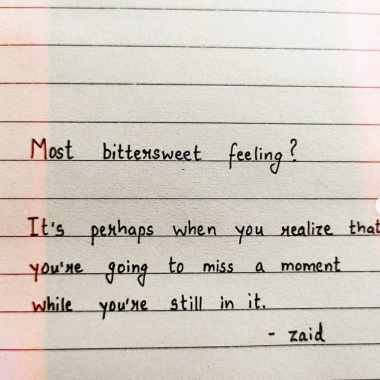 Most bittersweet feeling?
It's perhaps when you realize that
you're going to miss a moment
while you're still in it.
- zaid